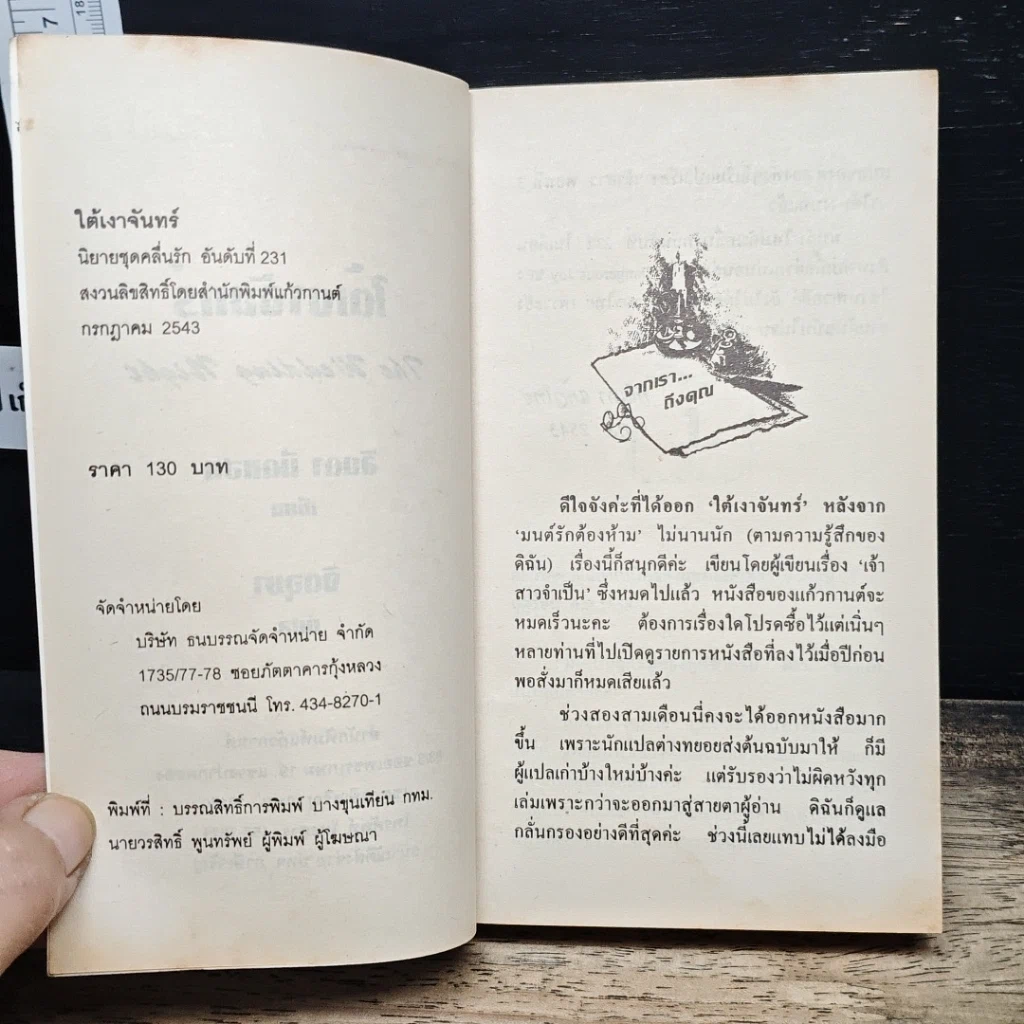 7
18
ใต้เงาจันทร์
นิยายชุดคลื่นรัก อันดับที่ 231
สงวนลิขสิทธิ์โดยสำนักพิมพ์แก้วกานต์
กรกฎาคม 2543
ราคา 130 บาท
จัดจำหน่ายโดย
บริษัท ธนบรรณจัดจำหน่าย จำกัด
1735/77-78 ซอยภัตตาคารกุ้งหลวง
ถนนบรมราชชนนี โทร. 434-8270-1
พิมพ์ที่ : บรรณสิทธิ์การพิมพ์ บางขุนเทียน กทม.
นายวรสิทธิ์ พูนทรัพย์ ผู้พิมพ์ ผู้โฆษณา
จากเรา...
ถึงคุณ
ดีใจจังค่ะที่ได้ออก ‘ใต้เงาจันทร์’ หลังจาก
‘มนต์รักต้องห้าม’ ไม่นานนัก (ตามความรู้สึกของ
ดิฉัน) เรื่องนี้ก็สนุกดีค่ะ เขียนโดยผู้เขียนเรื่อง ‘เจ้า
สาวจำเป็น’ ซึ่งหมดไปแล้ว หนังสือของแก้วกานต์จะ
หมดเร็วนะคะ ต้องการเรื่องใดโปรดซื้อไว้แต่เนิ่นๆ
หลายท่านที่ไปเปิดดูรายการหนังสือที่ลงไว้เมื่อปีก่อน
พอสั่งมาก็หมดเสียแล้ว
ช่วงสองสามเดือนนี้คงจะได้ออกหนังสือมาก
ขึ้น เพราะนักแปลต่างทยอยส่งต้นฉบับมาให้ ก็มี
ผู้แปลเก่าบ้างใหม่บ้างค่ะ แต่รับรองว่าไม่ผิดหวังทุก
เล่มเพราะกว่าจะออกมาสู่สายตาผู้อ่าน ดิฉันก็ดูแล
กลั่นกรองอย่างดีที่สุดค่ะ ช่วงนี้เลยแทบไม่ได้ลงมือ